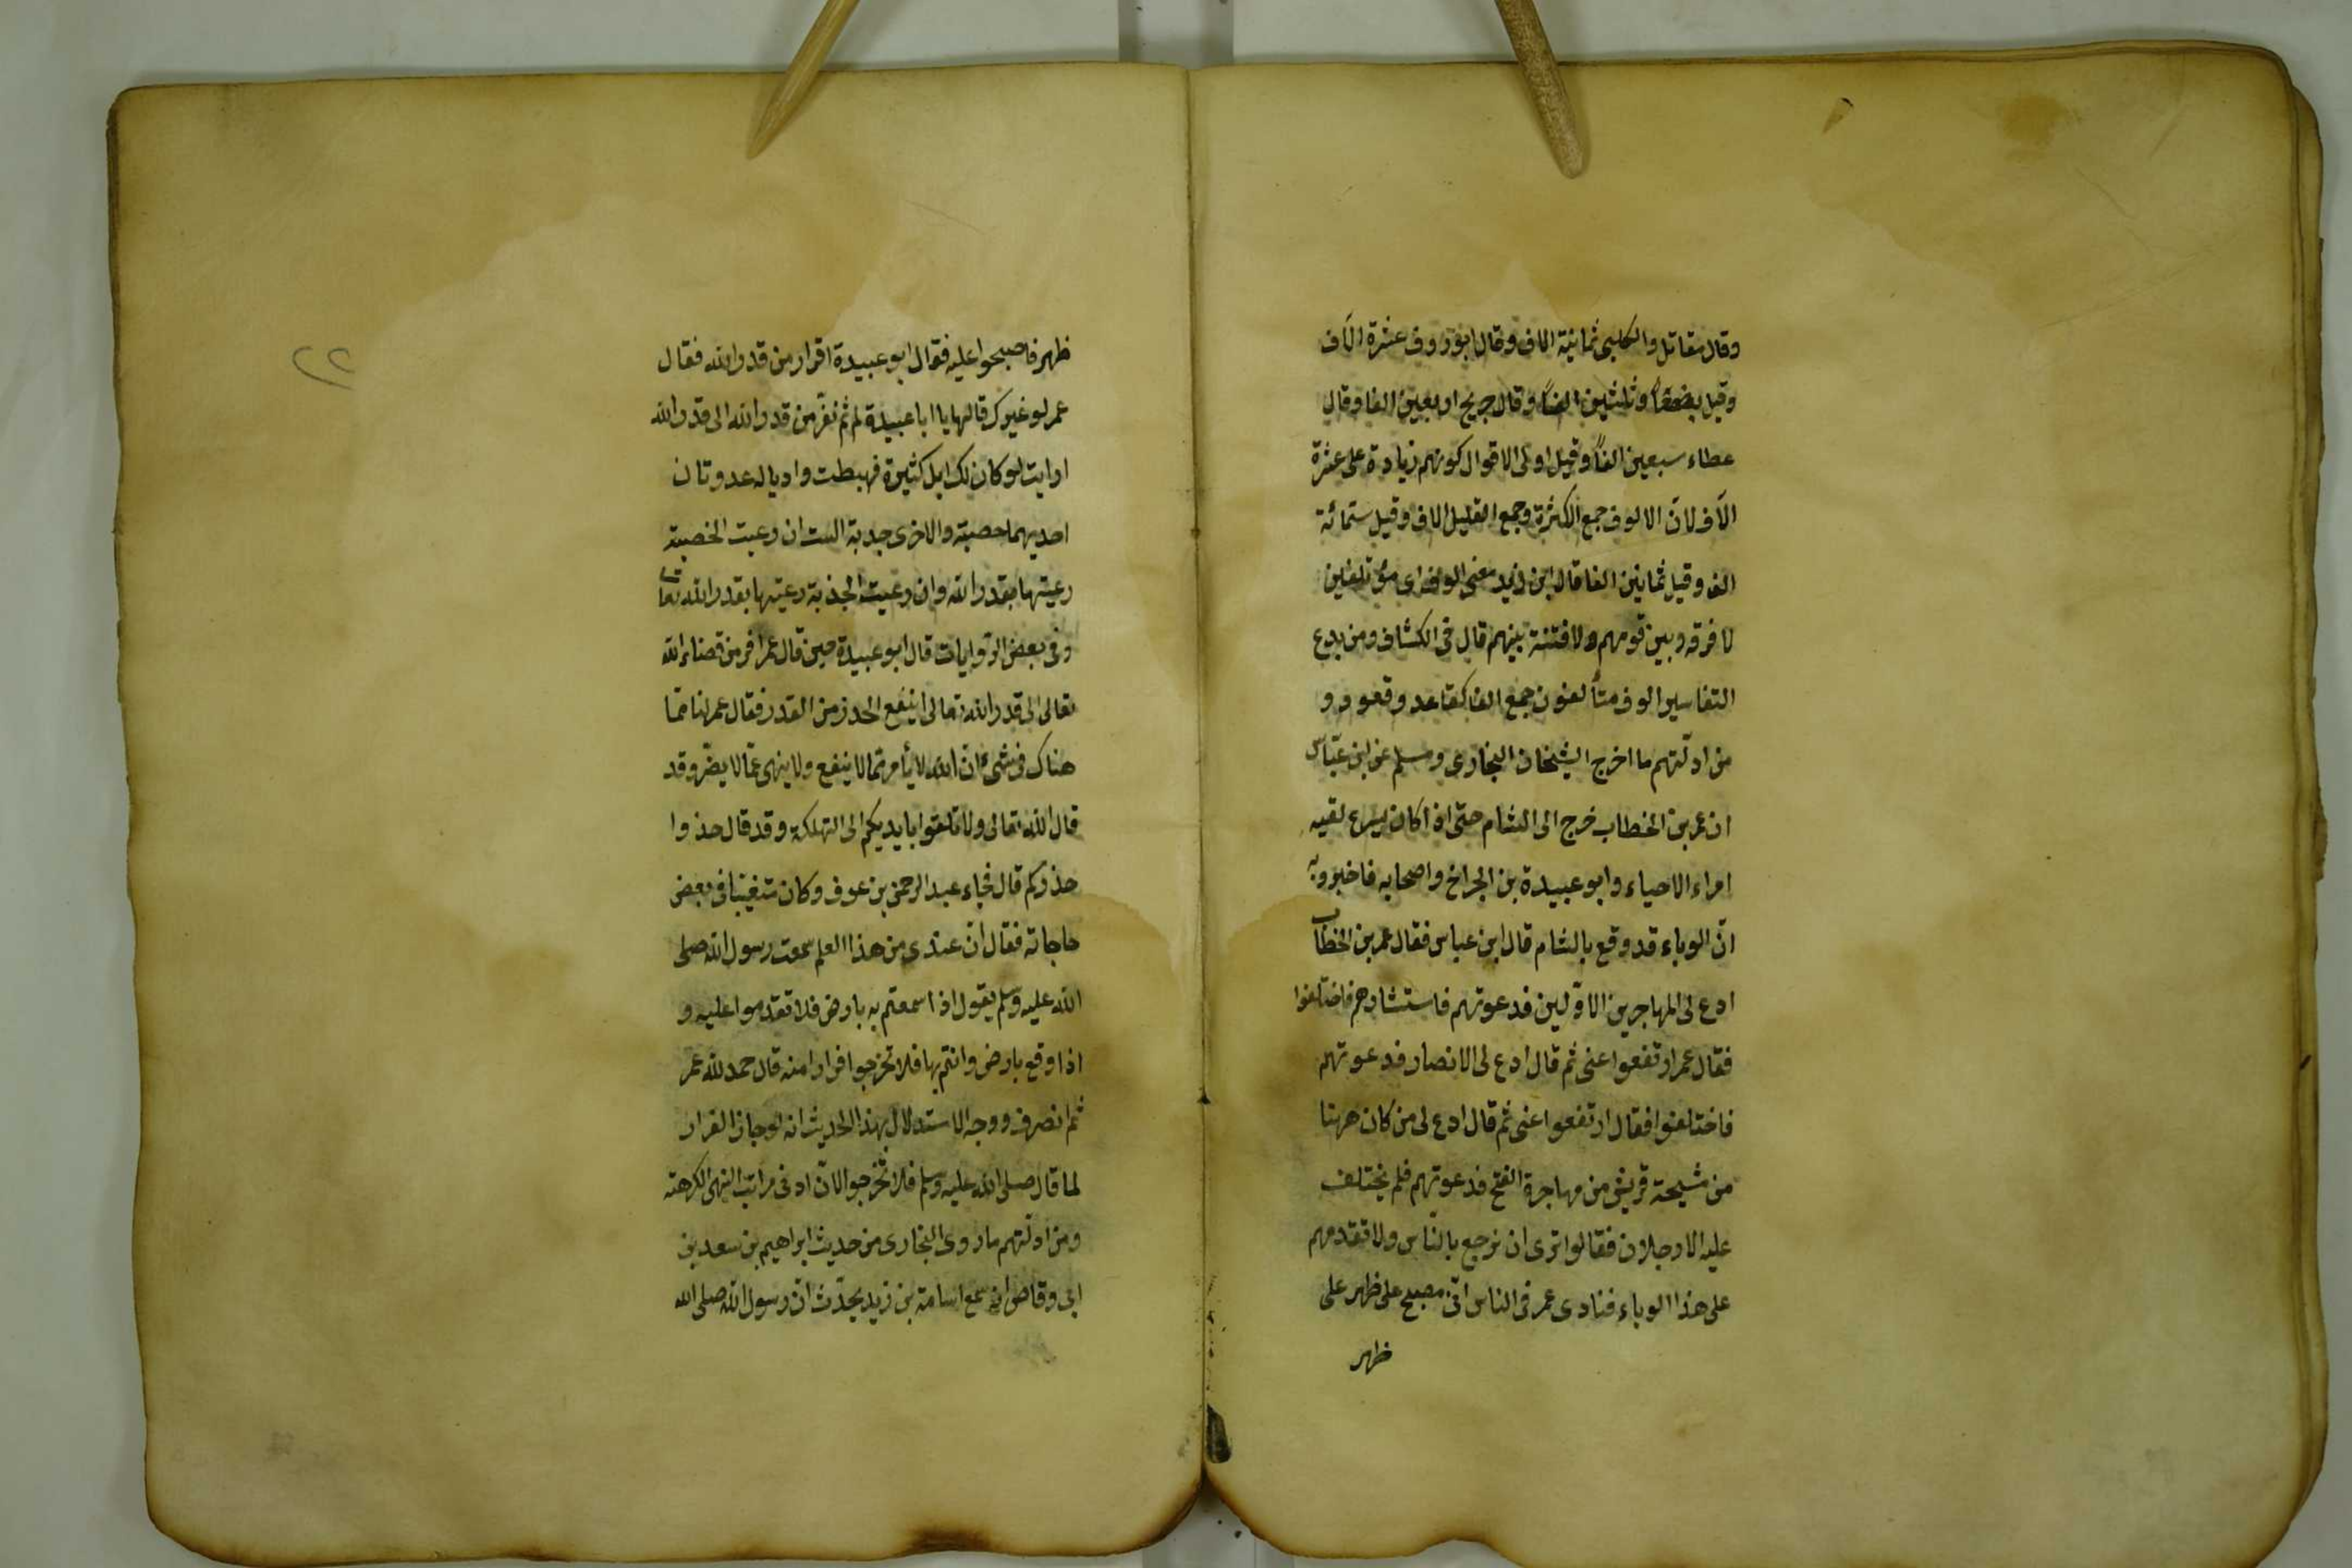 وقال مقاتل والكلبى ثمانية الاف وقال ابوروف عشرة الآف
وقيل بضعة وثلثين الفاً وقال جريح اربعين الفا وقال
عطاء سبعين الفاً وقيل اولى الاقوال كونهم زيادة على عشرة
الآف لانّ الالوف جمع الكثرة وجمع القليل الاف وقيل ستمائة
الف وقيل ثمانين الفا قال ابن زيد معنى الوف اى مؤتلفين
لا فرقه وبين قومهم ولا فتنة بينهم قال فى الكشاف ومن بدع
التفاسير الوف متألفون جمع الف كقاعد وقعود و
من ادلّتهم ما اخرج الشيخان البخارى ومسلم عن ابن عبّاس
ان عمر بن الخطاب خرج الى الشام حتى اذا كان بسرع لقيه
امراء الاحياء وابو عبيدة بن الجراح واصحابه فاخبروه
انّ الوباء قد وقع بالشام قال ابن عباس فقال عمر بن الخطّاب
ادع لى المهاجرين الاوّلين فدعوتهم فاستشارهم فاختلفوا
فقال عمر ارتفعوا عنى ثم قال ادع لى الانصار فدعوتهم
فاختلفوا فقال ارتفعوا عنى ثم قال ادع لى من كان ههنا
من مشيحة قريش من مهاجرة الفتح فدعوتهم فلم يختلف
عليه الا رجلان فقالوا ترى ان نرجع بالنّاس ولا تقدمهم
على هذا الوباء فنادى عمر فى الناس انّى مصبح على ظهر على
ظهر
ظهر فاصبحوا عليه فقال ابو عبيدة افرار من قدر الله فقال
عمر لو غيرك قالها يا ابا عبيدة لم ثم نفرّ من قدر الله الى قدر الله
ارايت لو كان لك ابل كثيرة فهبطت واديا له عدوتان
احديهما خصبة والاخرى جدبة الست ان رعيت الخصبة
رعيتها بقدر الله وان رعيت الجذبة رعيتها بقدر الله تعا
وفى بعض الرّوايات قال ابو عبيدة حين قال عمر افر من قضاء الله
تعالى الى قدر الله تعالى اينفع الحذر من القدر فقال عمر لنا ممّا
هناك فى شىء انّ الله لا يأمر بما لا ينفع ولا ينهى عمّا لا يضرّ وقد
قال الله تعالى ولا تلقوا بايديكم الى التهلكة وقد قال خذوا
حذركم قال فجاء عبد الرحمن بن عوف وكان متغيبا فى بعض
حاجاته فقال انّ عندى من هذا العلم سمعت رسول الله صلى
الله عليه وسلم يقول اذا سمعتم به بارض فلا تقدموا عليه و
اذا وقع بارض وانتم بها فلا تخرجوا فرارا منه قال حمد لله عمر
ثم انصرف ووجه الاستدلال بهذا الحديث انه لو جاز الفرار
لما قال صلى الله عليه وسلم فلا تخرجوا لانّ ادنى مراتب النهى الكرهته
ومن ادلّتهم ما روى البخارى من حديث ابراهيم بن سعد بن
ابى وقاص انه سمع اسامة بن زيد يحدّث انّ رسول الله صلى الله
٢٢